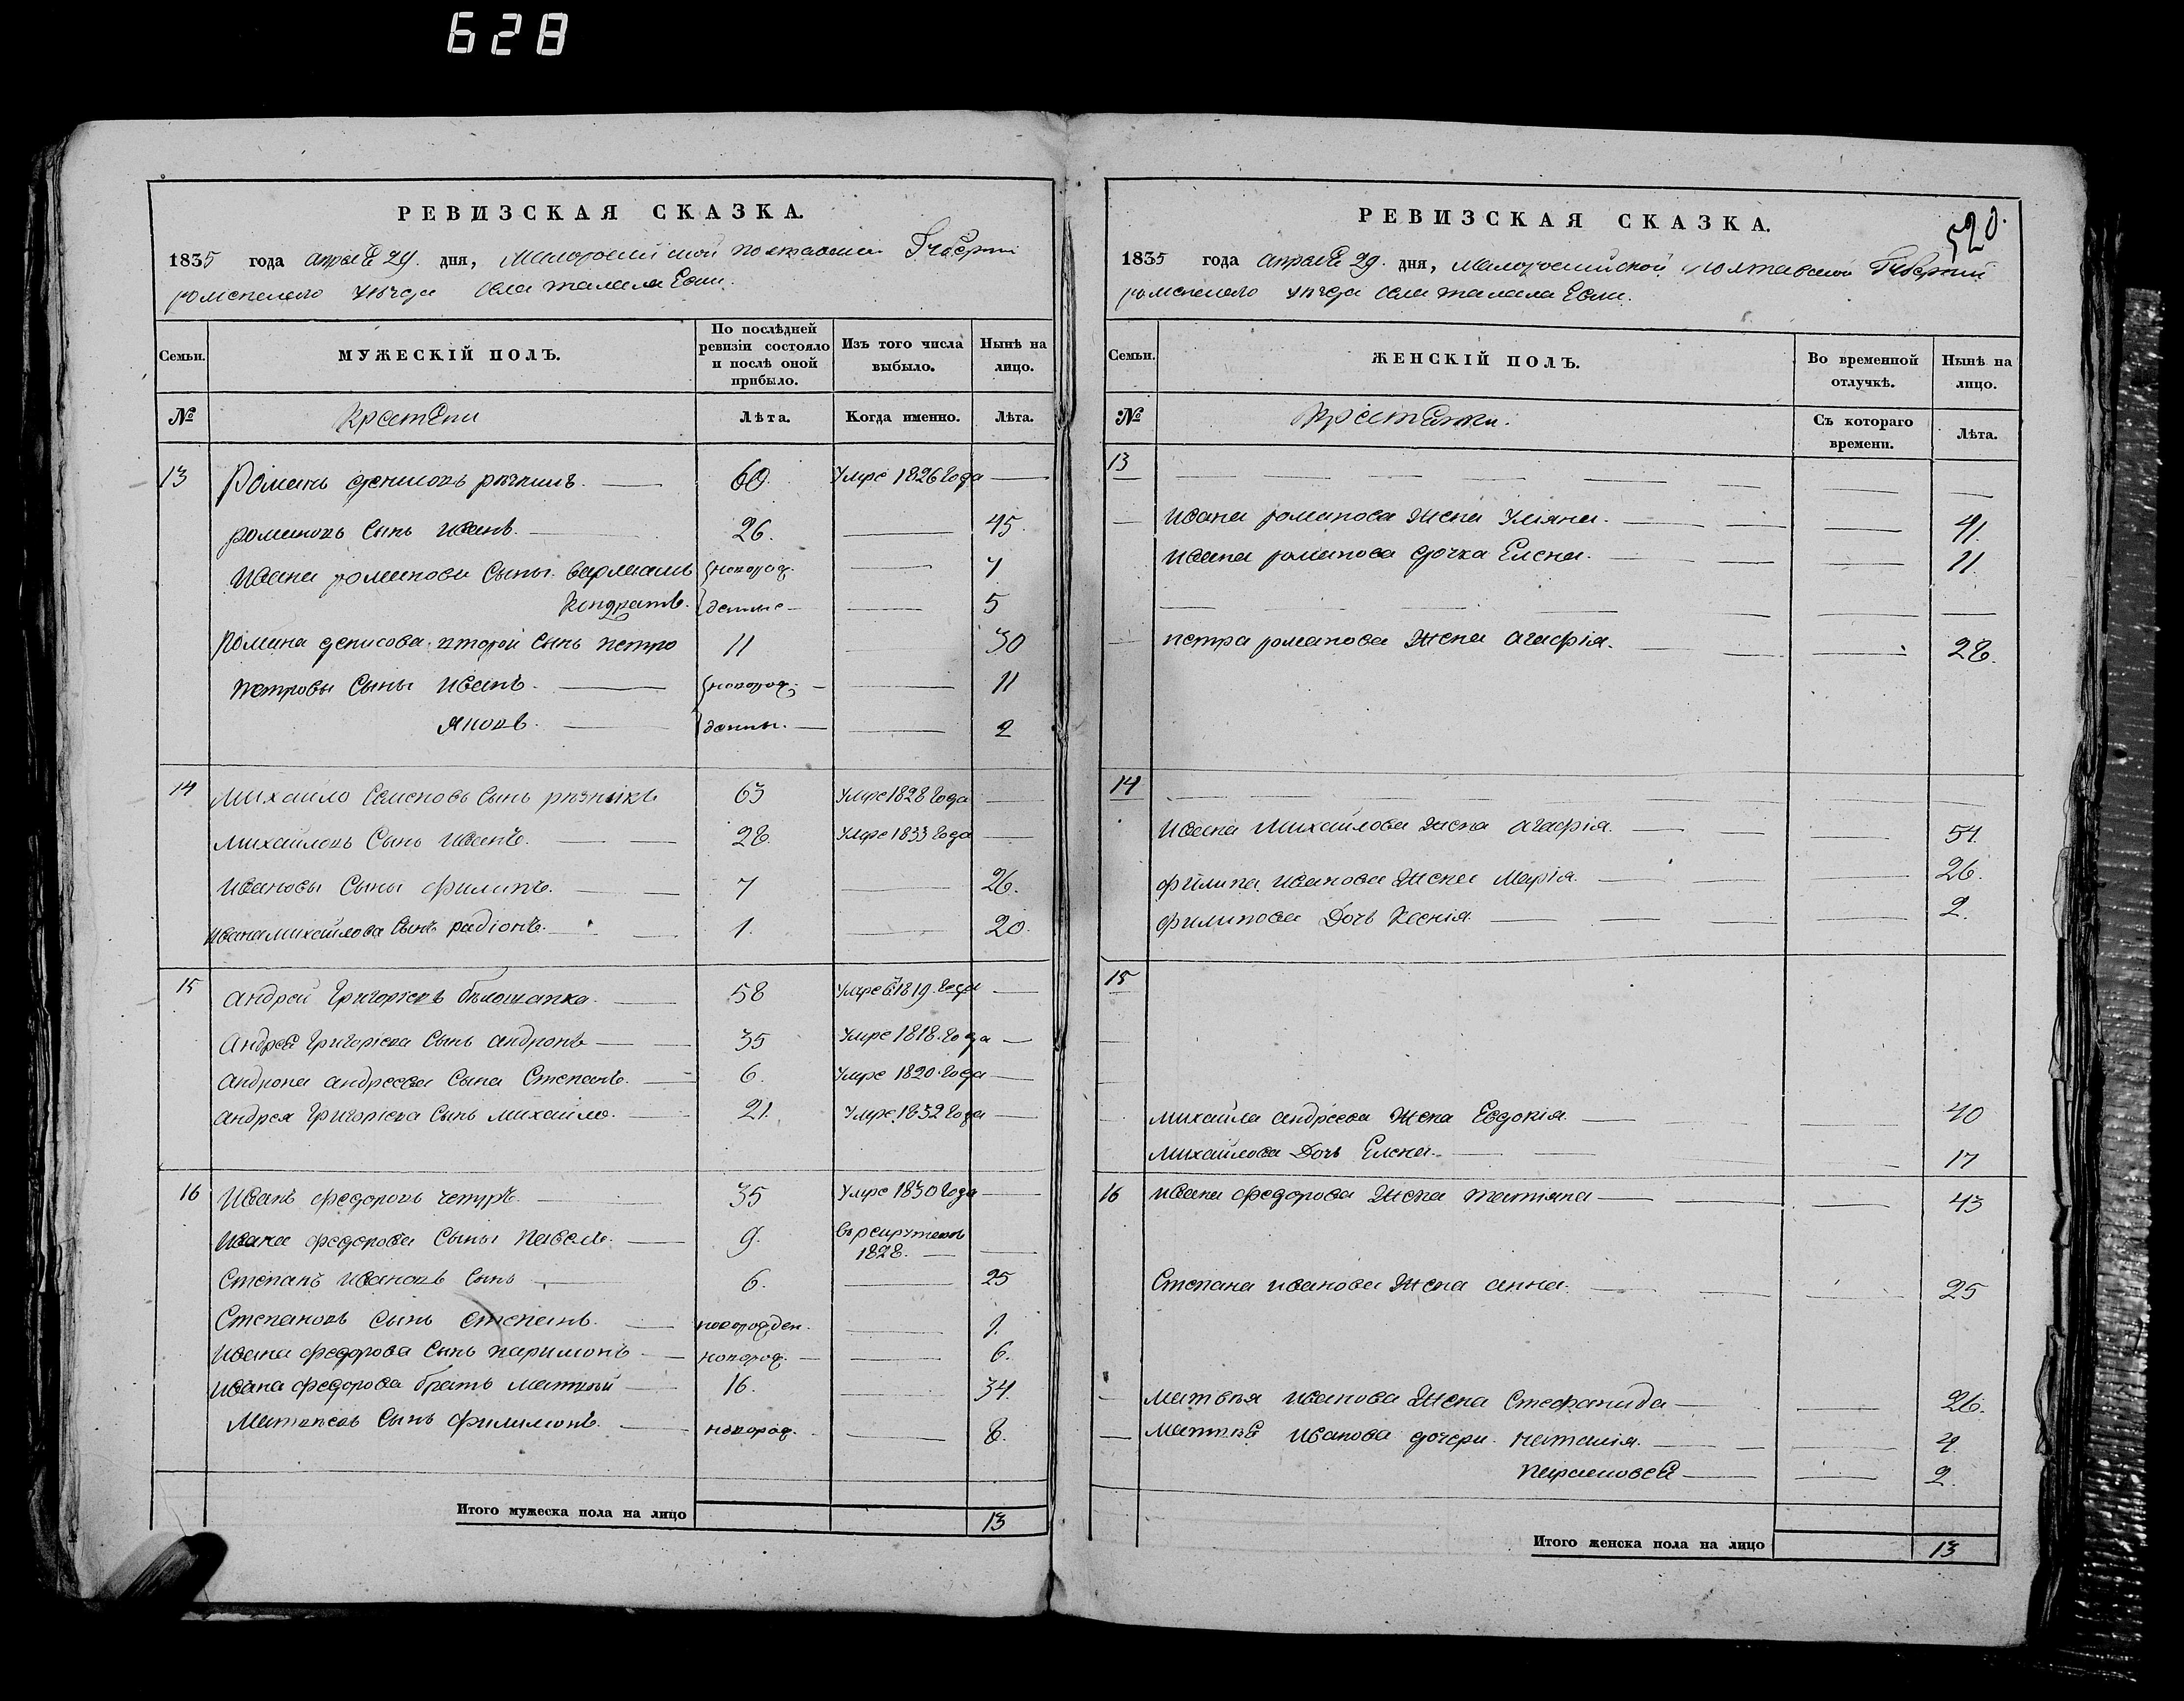 628
РЕВИЗСКАЯ СКАЗКА.
1835 года апреля 29. дня, Малоросийской полтавской Губернии
роменского уезда села талалаевки.
Семьи. МУЖЕСКІЙ ПОЛЪ. По послѣдней ревизіи состояло и послѣ оной прибыло. Изъ того числа выбыло. Нынѣ на лицо.
№ Крестяни Лѣта. Когда именно. Лѣта.
13 Романъ денисовъ 60. Умре 1826 Года
романовъ Сынъ иванъ. 26. 45.
ивана романова Сыны. варлаамъ новорож. 7
Кондратъ. денные 5
Романа денисова второй Сынъ петро 11 30
петровы Сыны иванъ. новорож. 11
яковъ. денны. 2
14 Михайло Семеновъ Сынъ рѣзникъ 63 Умре 1828 Года
михайловъ Сынъ иванъ. 28. Умре 1833 Года
ивановы Сыны филипъ. 7 26.
ивана михайлова Сынъ радіонъ. 1. 20.
15 андрей Григоріевъ бѣлошапка. 58 Умре 1819. Года
андрея Григоріева Сынъ андронъ 35 Умре 1818. Года
андрона андреева Сына Степанъ. 6. Умре 1820. Года
андрея Григоріева Сынъ михайло. 21. Умре 1832 Года
16 иванъ федоровъ 35 Умре 1830 Года
ивана федорова Сыны павелъ. 9. въ рекруты 1828.
Степанъ ивановъ Сынъ 6. 25
Степановъ Сынъ Степанъ. новорожден. 1.
ивана федорова Сынъ паримонъ новорож. 6.
ивана федорова братъ матвѣй 16. 34.
матвѣевъ Сынъ филимонъ. новорож. 8.
Итого мужеска пола на лицо 13
520.
РЕВИЗСКАЯ СКАЗКА.
1835 года апреля 29. дня, малоросийской полтавской Губернии
роменского уезда села талалаевки.
Семьи. ЖЕНСКІЙ ПОЛЪ. Во временной отлучкѣ. Нынѣ на лицо.
№ крестянки. Съ котораго времени. Лѣта.
13
ивана романова жена Уляна. 41.
ивана романова дочка Елена. 11.
петра романова жена агафія. 28.
14
ивана михайлова жена агафія. 54.
филипа иванова жена Марія. 26.
филипова Дочь Ксенія. 2.
15
михайла андреева жена Евдокія. 40
михайлова Дочь Елена. 17
16 ивана федорова жена татіяна 43
Степана иванова жена анна. 25
матвѣя иванова жена Стефанида 26.
матвѣя иванова дочери наталія. 4.
парасковея 2.
Итого женска пола на лицо 13